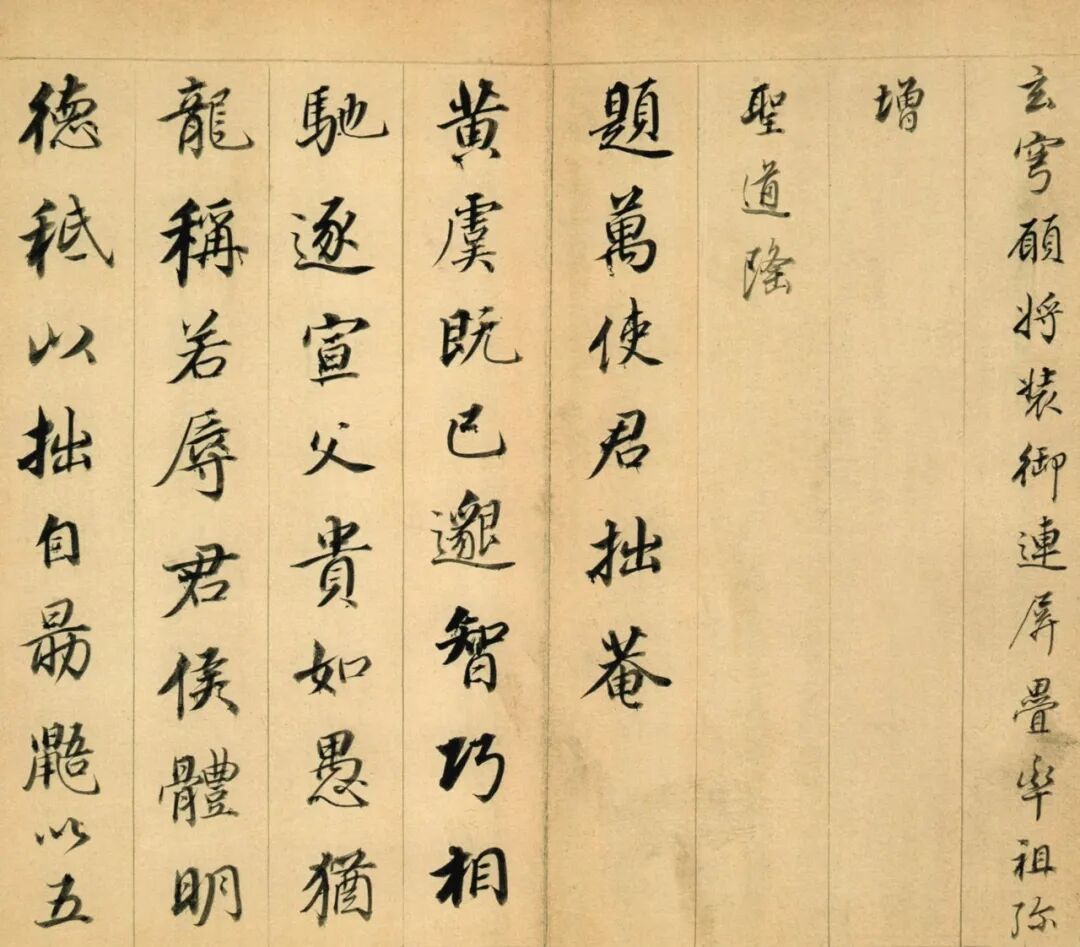 玄穹願將裝御連屏疊率祖弥
增
聖道隆
題萬使君拙菴
黄虞既已邈智巧相
馳逐宣父貴如愚猶
龍稱若辱君侯體明
德秪以拙自勗鼯以五